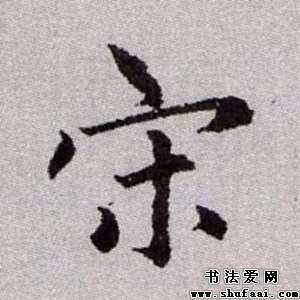 宋
书法爱网
www.shufaai.com